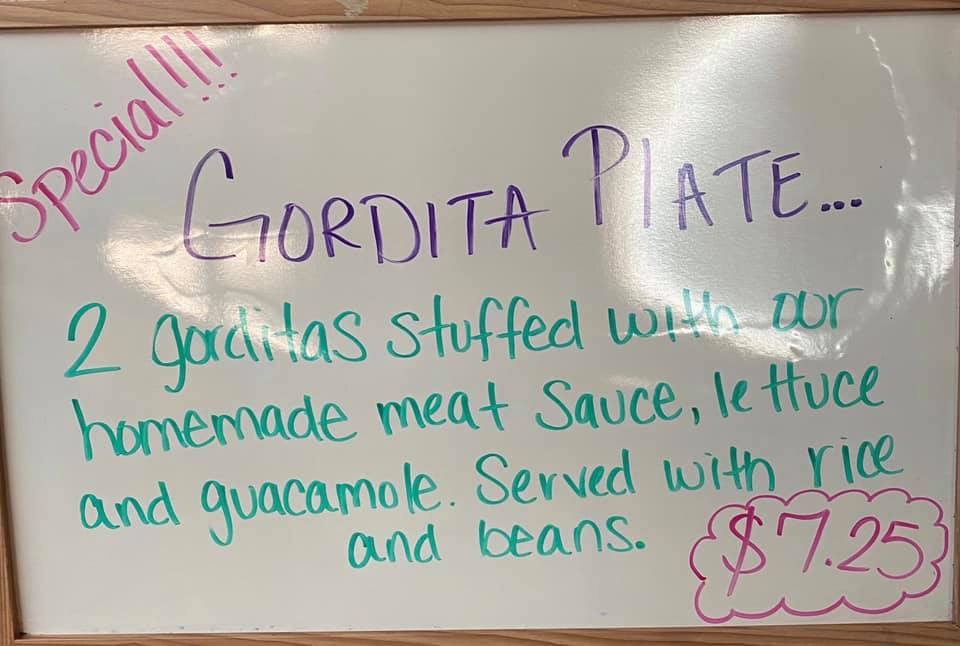 Special!!!
GORDITA PLATE...
2 gorditas stuffed with our
homemade meat sauce, lettuce
and guacamole. Served with rice
and beans.
$7.25